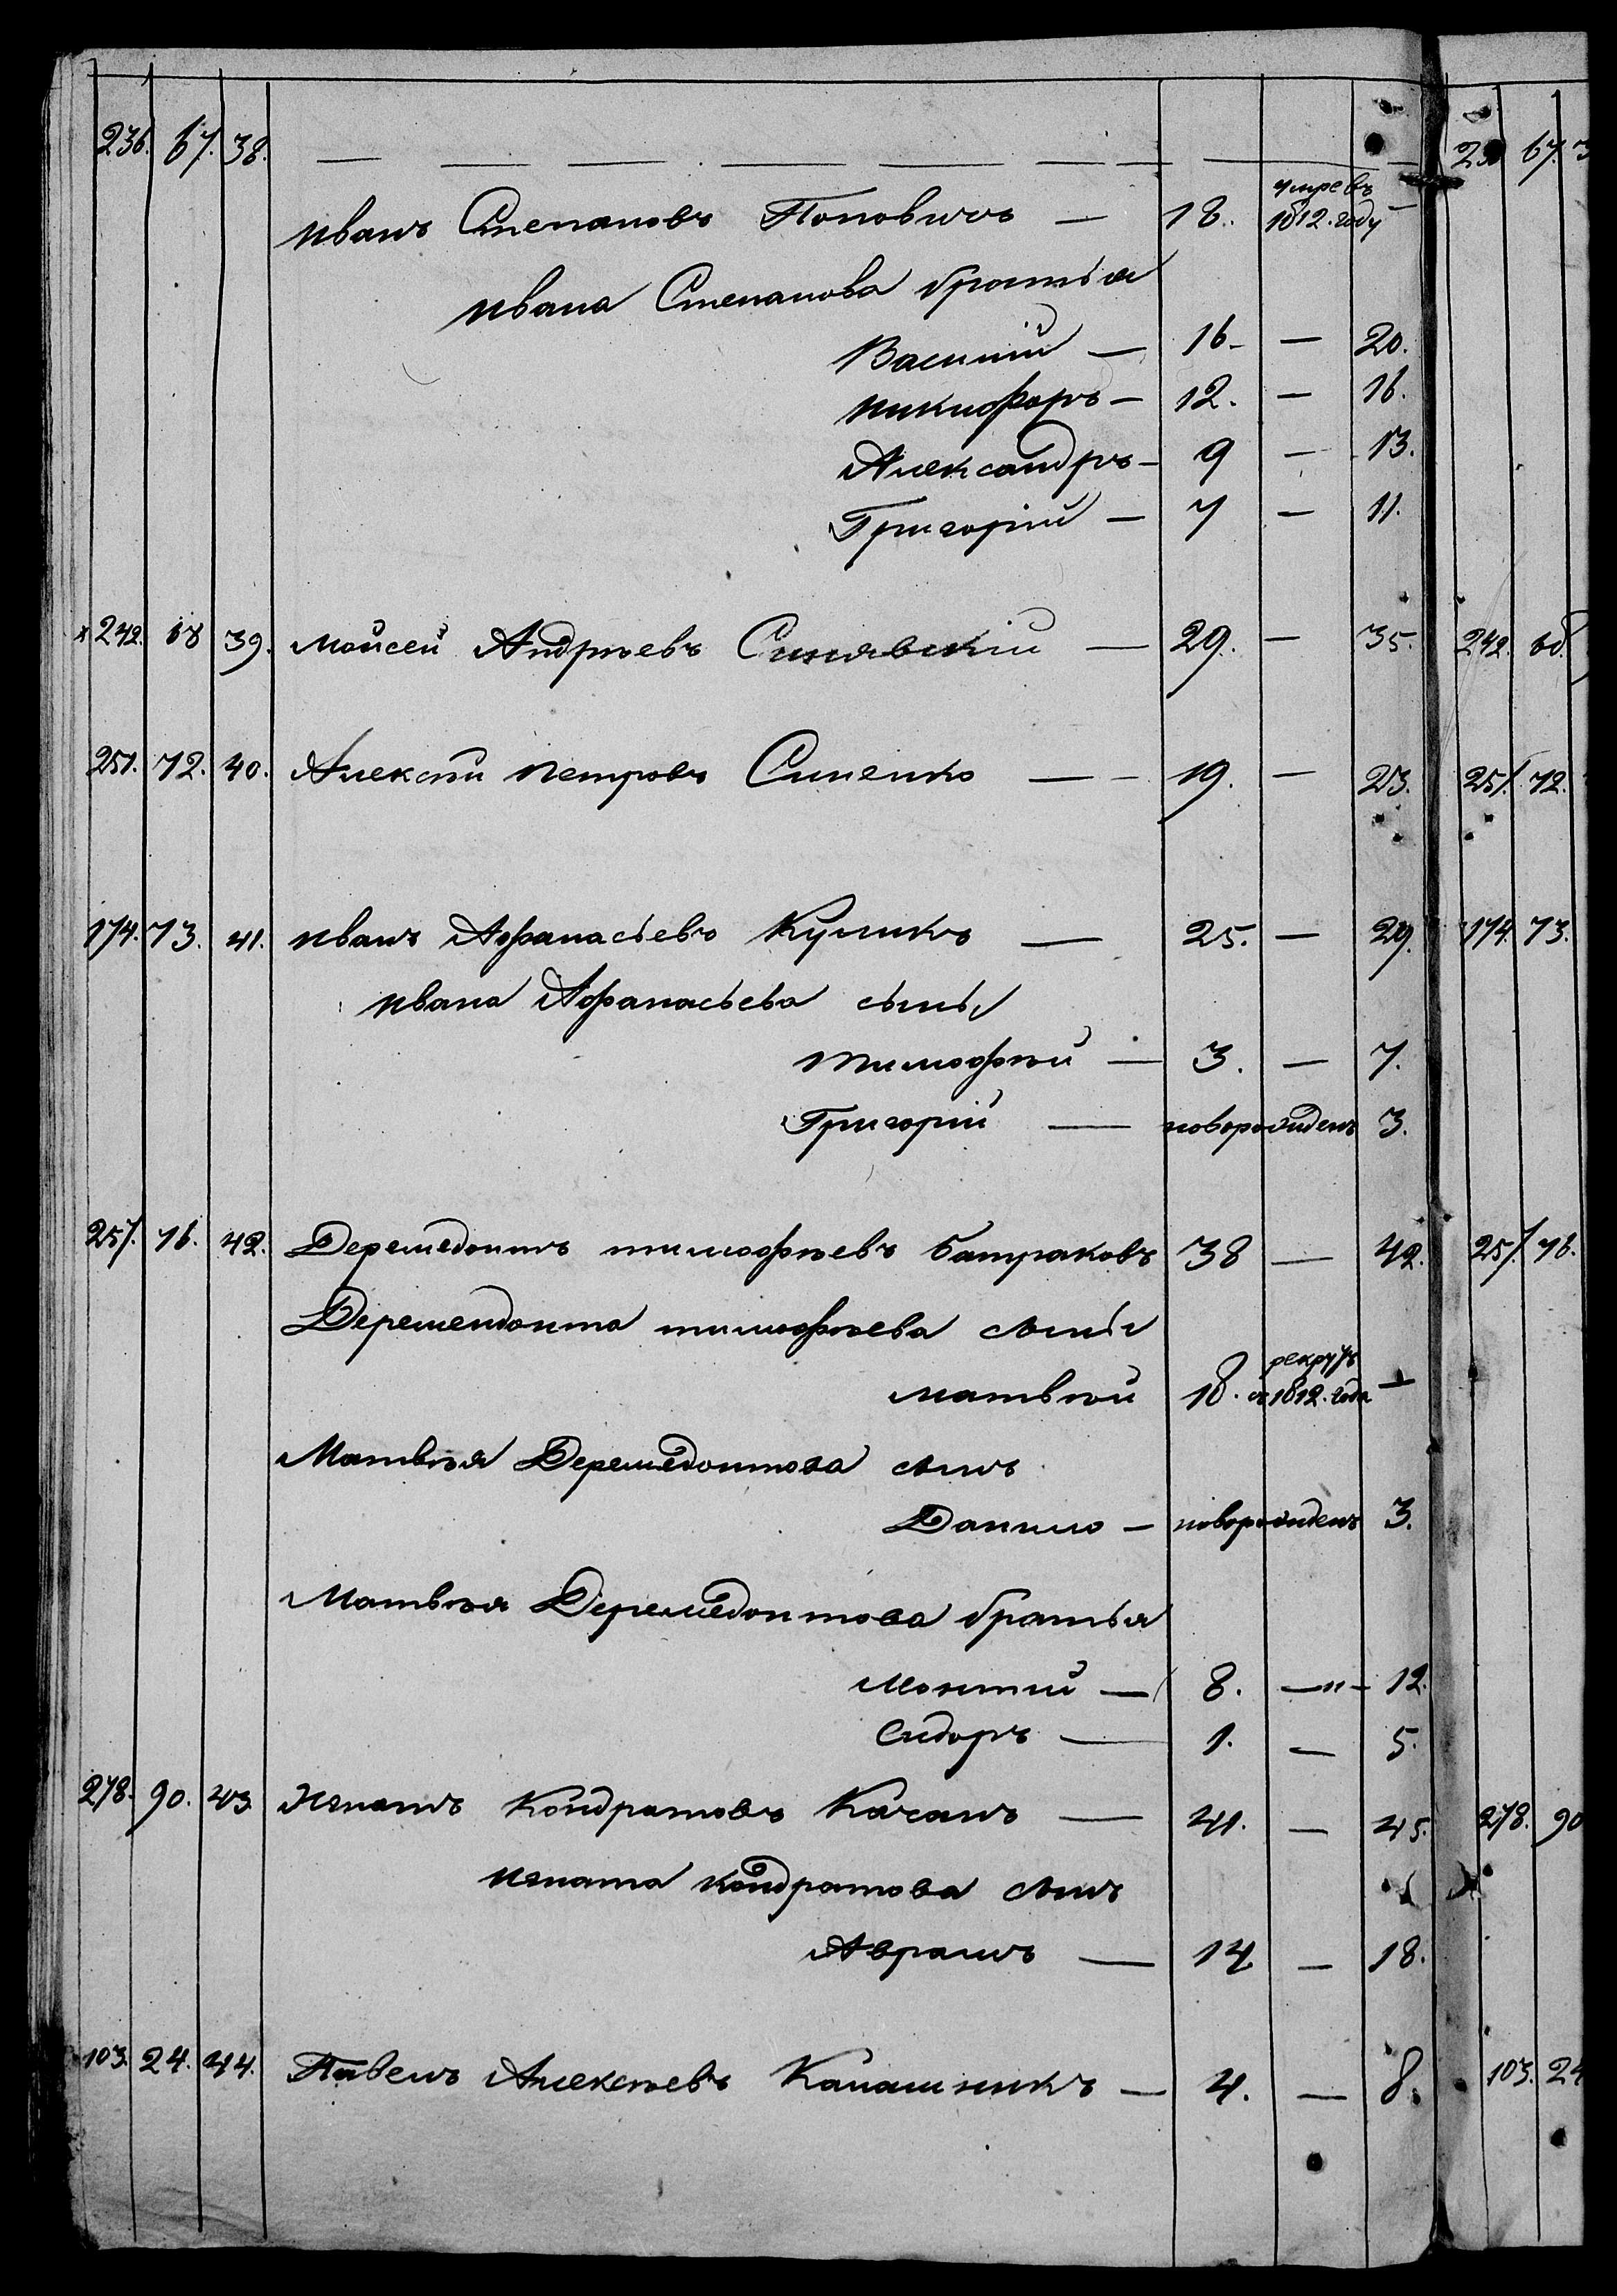 236. 67. 38. — — — — — — — — —
Иванъ Степановъ Поповичъ — 18. умре въ 1812. году —
Ивана Степанова братья
Василий — 16 — 20.
Никифоръ — 12. — 16.
Александръ — 9 — 13.
Григорий — 7 — 11.
х 242. 68 39. Мойсей Андрѣевъ Синявский — 29. — 35. 242. 68.
251. 72. 40. Алексѣй Петровъ Синенко — 19. — 23. 251. 72.
174. 73. 41. Иванъ Афанасьевъ Куликъ — 25. — 29. 174. 73.
Ивана Афанасьева сыны
Тимофѣй — 3. — 7.
Григорий — новорожденъ 3.
257. 76. 42. Деремедонтъ Тимофѣевъ Батраковъ 38 — 42. 257. 76.
Деремендонта Тимофѣева сыны
Матвѣй 18. рекрутъ съ 1812. года —
Матвѣя Деремедонтова сынъ
Данило — новорожденъ 3.
Матвѣя Деремедонтова братья
Леонтий — 8. — 12.
Сидоръ — 1. — 5.
278. 90. 43. Игнатъ Кондратовъ Качанъ — 41. — 45. 278. 90
Игната Кондратова сынъ
Аврамъ — 14 — 18.
103. 24. 44. Павелъ Алексѣевъ Калашникъ — 4. — 8. 103. 24